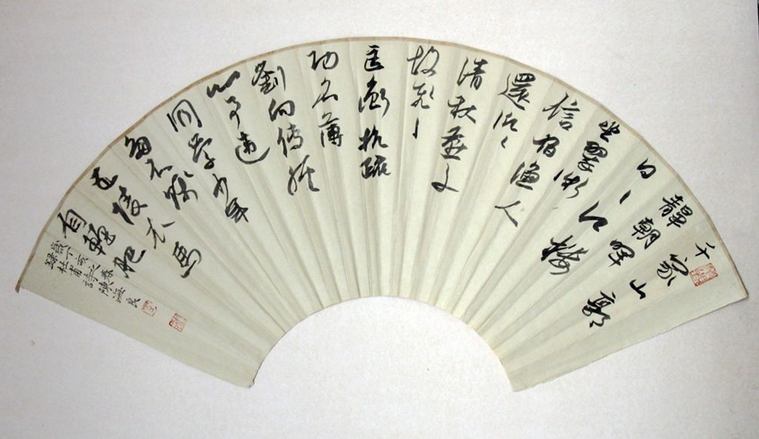 千家山郭
靜朝暉
日、江樓
坐翠微
信宿漁人
還泛、
清秋燕子
故飛、
匡衡抗疏
功名薄
劉向傳經
心事違
同學少年
多不賤
五陵衣馬
自輕肥
歲丁亥之春
錄杜甫詩陳海良